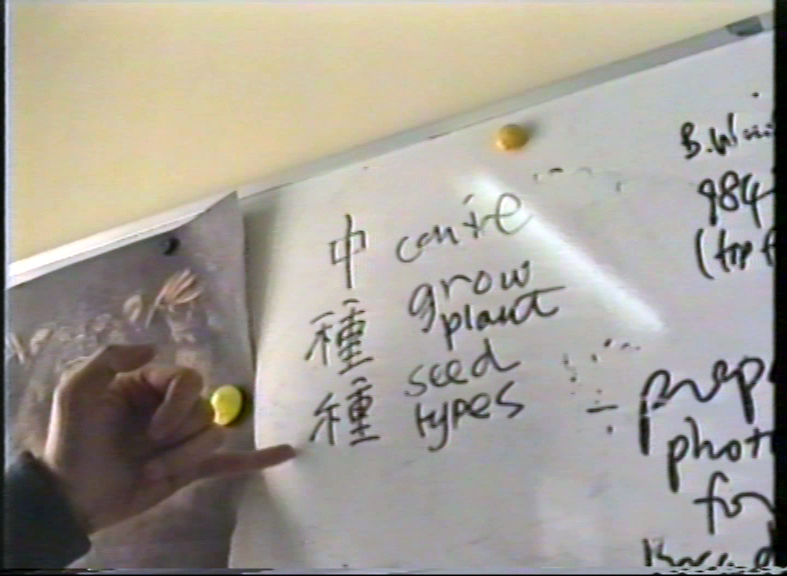 中 centre
種 grow
plant
種 seed
types
984
(top f
- prep
phot
for